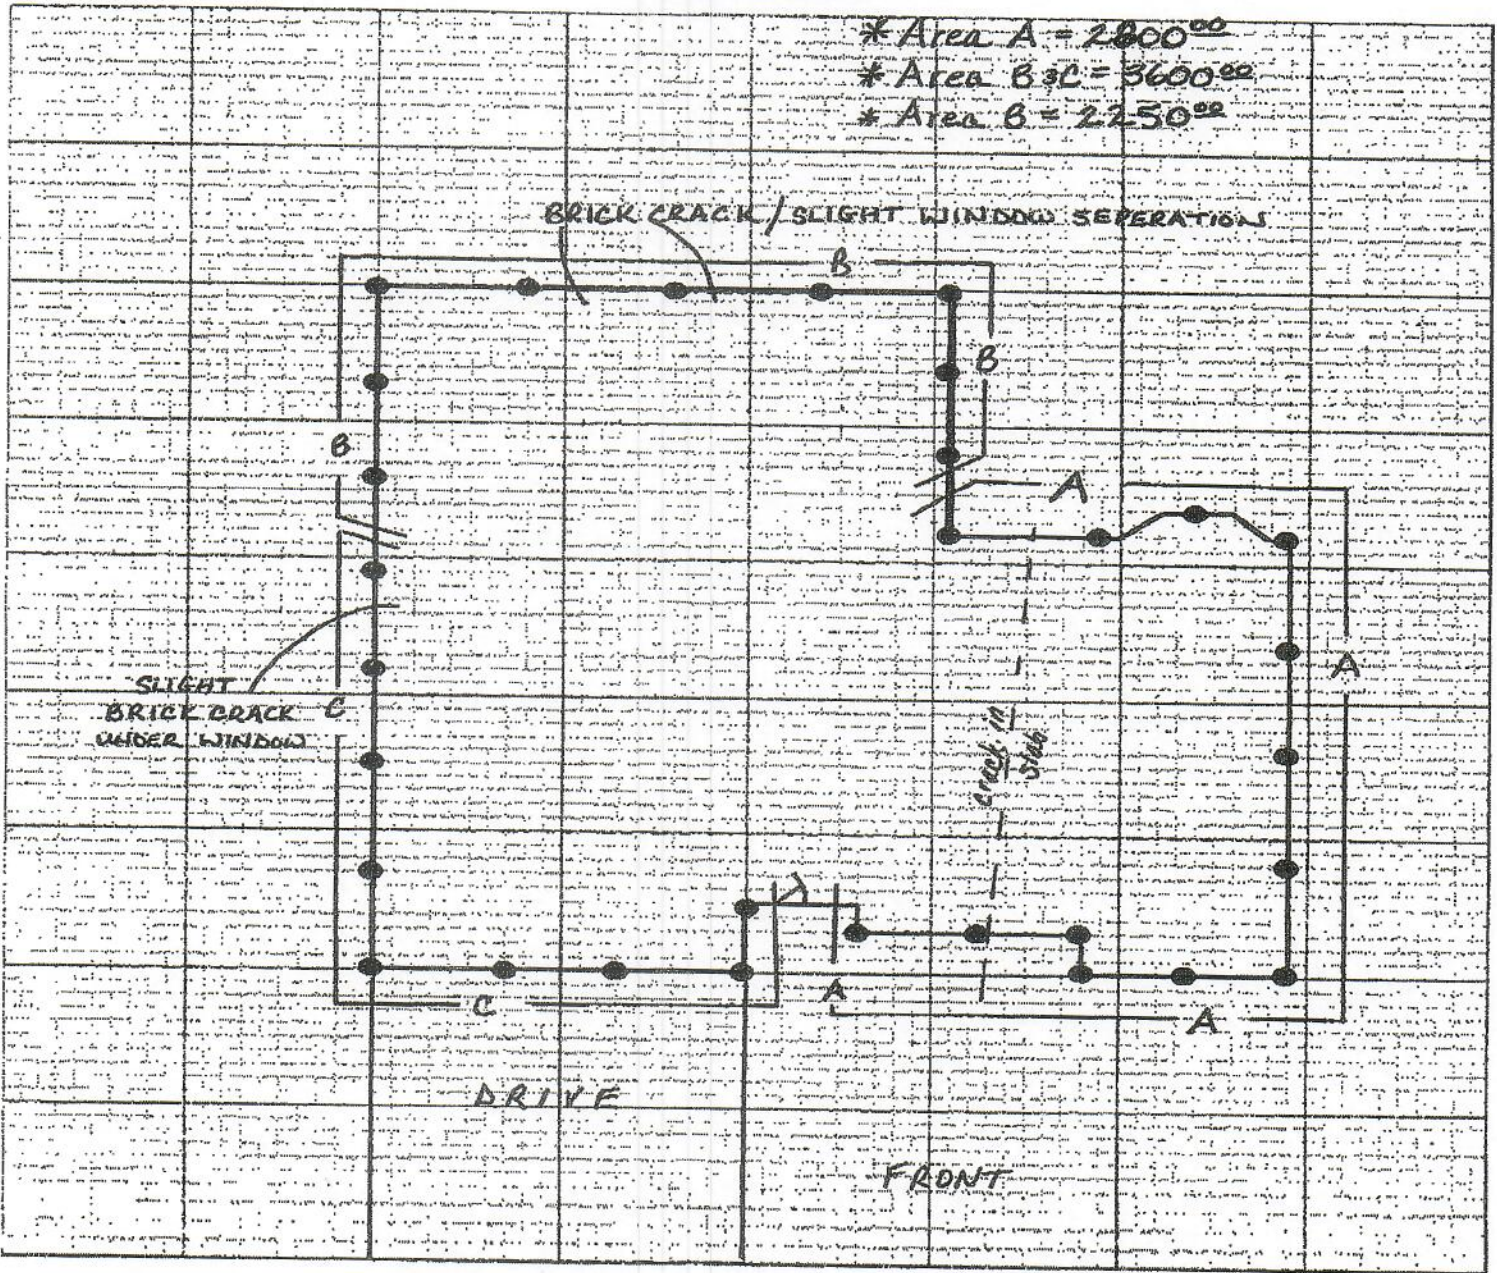 * Area A = 2800⁰⁰
* Area B & C = 3600⁰⁰
* Area B = 2250⁰⁰
BRICK CRACK / SLIGHT WINDOW SEPERATION
B
B
B
A
A
SLIGHT
BRICK CRACK
UNDER WINDOW
C
crack in
slab
A
A
C
A
DRIVE
FRONT